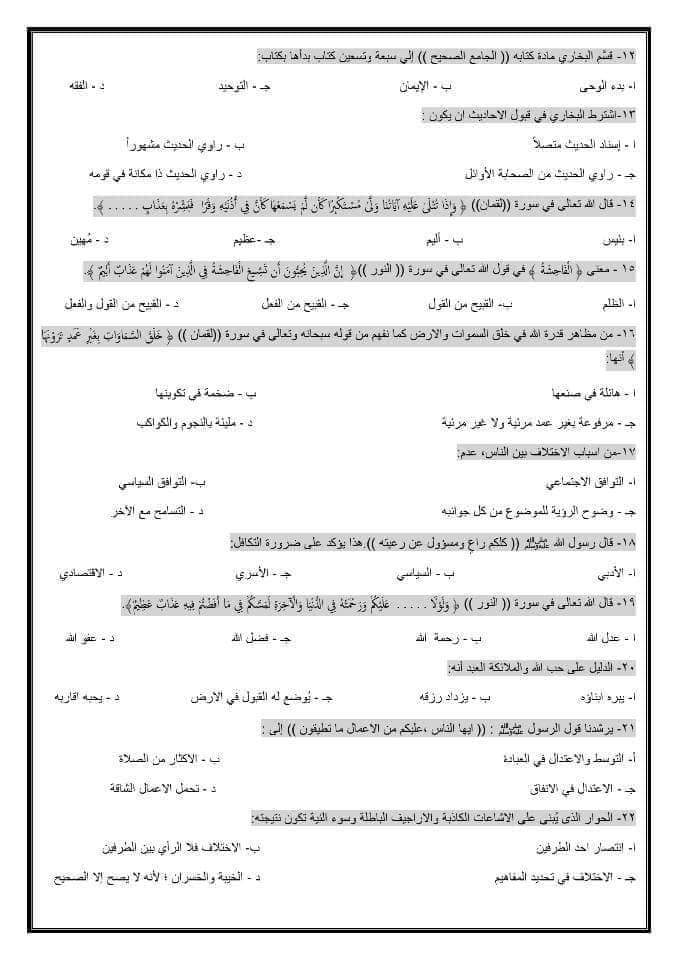 ١٢- قسَّم البخاري مادة كتابه (( الجامع الصحيح )) إلي سبعة وتسعين كتاب بدأها بكتاب:
ا- بدء الوحى ب - الإيمان جـ - التوحيد د - الفقه
١٣-اشترط البخاري في قبول الاحاديث ان يكون :
ا - إسناد الحديث متصلاً ب - راوي الحديث مشهوراً
جـ - راوي الحديث من الصحابة الأوائل د - راوي الحديث ذا مكانة في قومه
١٤- قال الله تعالى في سورة ((لقمان)) ﴿ وَإِذَا تُتْلَىٰ عَلَيْهِ آيَاتُنَا وَلَّىٰ مُسْتَكْبِرًا كَأَن لَّمْ يَسْمَعْهَا كَأَنَّ فِي أُذُنَيْهِ وَقْرًا فَبَشِّرْهُ بِعَذَابٍ . . . . . ﴾.
ا- بئيس ب - أليم جـ -عظيم د - مُهين
١٥ - معنى ﴿ الْفَاحِشَةُ ﴾ في قول الله تعالى في سورة (( النور ))﴿ إِنَّ الَّذِينَ يُحِبُّونَ أَن تَشِيعَ الْفَاحِشَةُ فِي الَّذِينَ آمَنُوا لَهُمْ عَذَابٌ أَلِيمٌ ﴾.
ا - الظلم ب- القبيح من القول جـ - القبيح من الفعل د - القبيح من القول والفعل
١٦- من مظاهر قدرة الله في خلق السموات والارض كما نفهم من قوله سبحانه وتعالى في سورة ((لقمان )) ﴿ خَلَقَ السَّمَاوَاتِ بِغَيْرِ عَمَدٍ تَرَوْنَهَا
﴾ أنها:
ا - هائلة في صنعها ب - ضخمة في تكوينها
جـ - مرفوعة بغير عمد مرئية ولا غير مرئية د - مليئة بالنجوم والكواكب
١٧-من اسباب الاختلاف بين الناس، عدم:
ا- التوافق الاجتماعي ب- التوافق السياسي
جـ - وضوح الرؤية للموضوع من كل جوانبه د - التسامح مع الآخر
١٨- قال رسول الله ﷺ (( كلكم راع ومسؤول عن رعيته )).هذا يؤكد على ضرورة التكافل:
ا- الأدبي ب - السياسي جـ - الأسري د - الاقتصادي
١٩- قال الله تعالى في سورة (( النور )) ﴿ وَلَوْلَا . . . . . عَلَيْكُمْ وَرَحْمَتُهُ فِي الدُّنْيَا وَالْآخِرَةِ لَمَسَّكُمْ فِي مَا أَفَضْتُمْ فِيهِ عَذَابٌ عَظِيمٌ﴾.
ا - عدل الله ب - رحمة الله جـ - فضل الله د - عفو الله
٢٠- الدليل على حب الله والملائكة العبد أنه:
ا- يبره ابناؤه ب - يزداد رزقه جـ - يُوضع له القبول في الارض د - يحبه اقاربه
٢١- يرشدنا قول الرسول ﷺ : (( ايها الناس ،عليكم من الاعمال ما تطيقون )) إلى :
أ- التوسط والاعتدال في العبادة ب - الاكثار من الصلاة
جـ - الاعتدال في الانفاق د - تحمل الاعمال الشاقة
٢٢- الحوار الذى يُبنى على الاشاعات الكاذبة والاراجيف الباطلة وسوء النية تكون نتيجته:
ا- انتصار احد الطرفين ب- الاختلاف فلا الرأي بين الطرفين
جـ - الاختلاف في تحديد المفاهيم د - الخيبة والخسران ؛ لأنه لا يصح إلا الصحيح